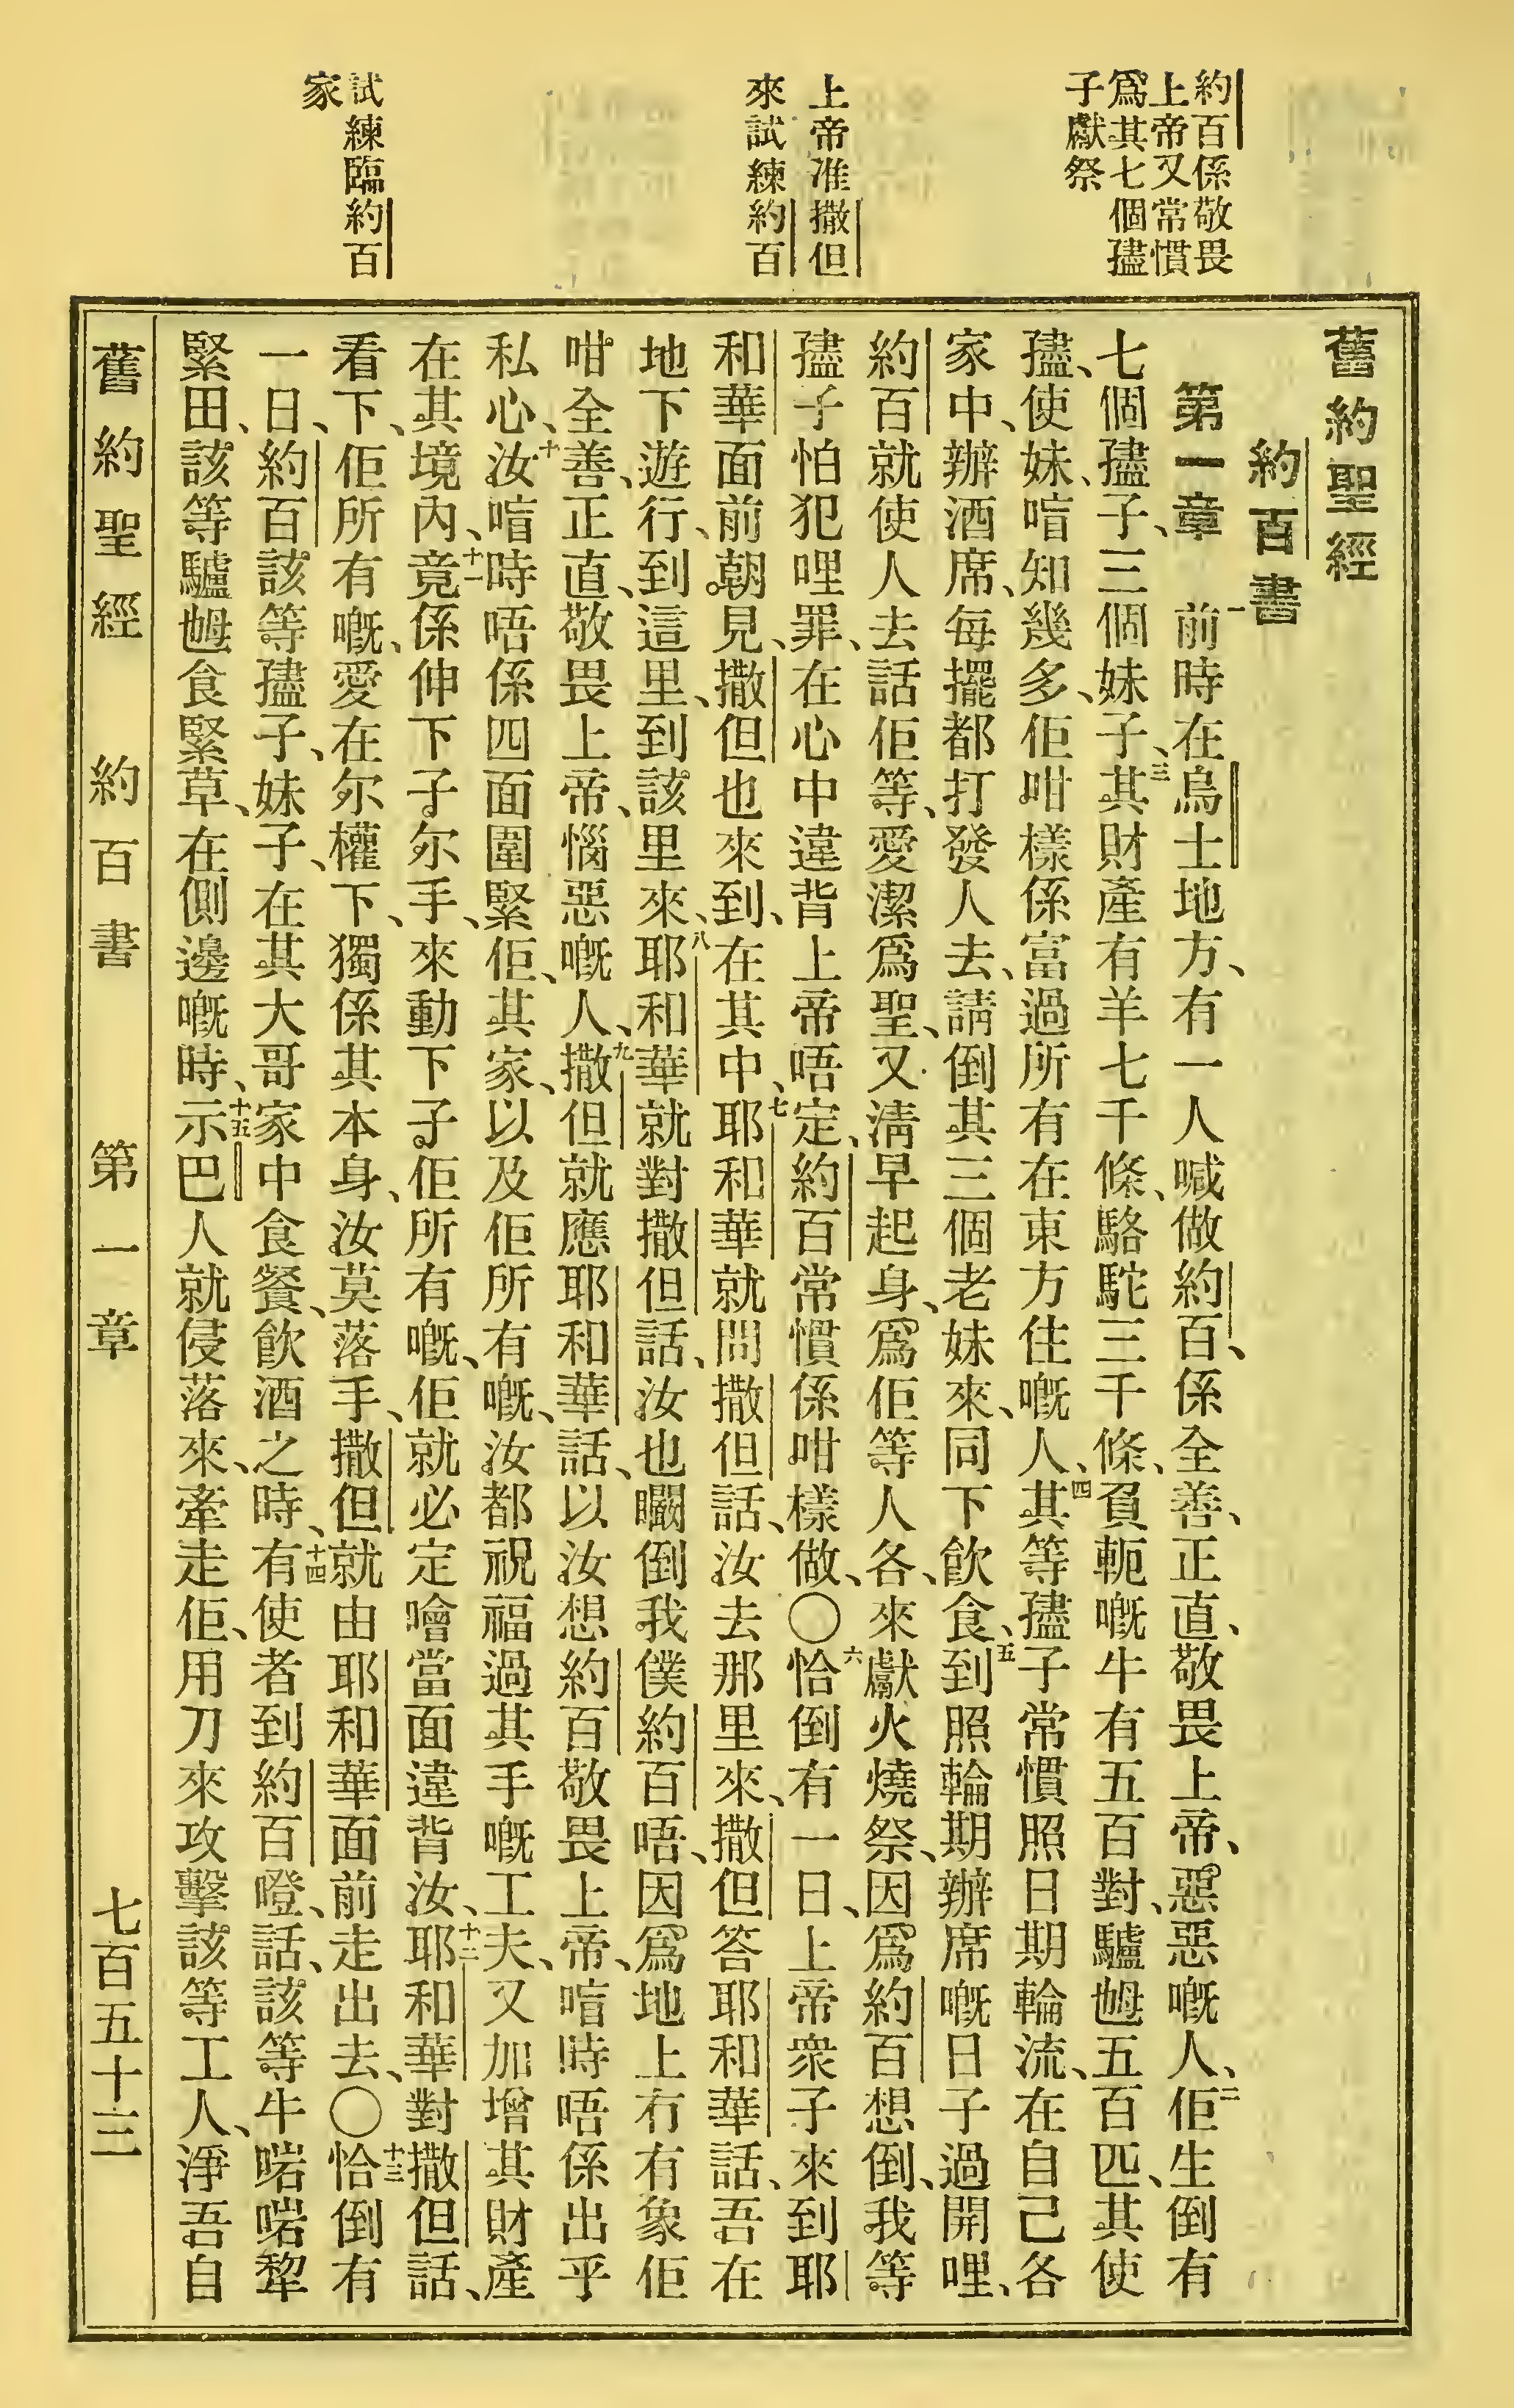 約百係敬畏
上帝又常慣
爲其七個孻
子獻祭
上帝准撒但
來試練約百
試練臨約百
家
舊約聖經
約百書
第一章 一前時在烏士地方、有一人喊做約百、係全善、正直、敬畏上帝、惡惡嘅人、二佢生倒有
七個孻子、三個妹子、三其財產有羊七千條、駱駝三千條、負軛嘅牛有五百對、驢乸五百匹、其使
孻、使妹、唁知幾多、佢咁樣係富過所有在東方住嘅人、四其等孻子常慣照日期輪流、在自己各
家中、辦酒席、每擺都打發人去、請倒其三個老妹來、同下飲食、五到照輪期辦席嘅日子過開哩、
約百就使人去話佢等、愛潔爲聖、又淸早起身、爲佢等人各、來獻火燒祭、因爲約百想倒、我等
孻子怕犯哩罪、在心中違背上帝唔定、約百常慣係咁樣做、〇六恰倒有一日、上帝衆子來到耶
和華面前朝見、撒但也來到、在其中、七耶和華就問撒但話、汝去那里來、撒但答耶和華話、吾在
地下遊行、到這里、到該里來、八耶和華就對撒但話、汝也矙倒我僕約百唔、因爲地上冇有象佢
咁全善、正直、敬畏上帝、惱惡嘅人、九撒但就應耶和華話、以汝想約百敬畏上帝、唁時唔係出乎
私心、十汝唁時唔係四面圍緊佢、其家、以及佢所有嘅、汝都祝福過其手嘅工夫、又加增其財產
在其境內、十一竟係伸下子尔手、來動下子佢所有嘅、佢就必定噲當面違背汝、十二耶和華對撒但話、
看下、佢所有嘅、愛在尔權下、獨係其本身、汝莫落手、撒但就由耶和華面前走出去、〇十三恰倒有
一日、約百該等孻子、妹子、在其大哥家中食餐、飲酒之時、十四有使者到約百嶝、話、該等牛啱啱犂
緊田、該等驢乸食緊草、在側邊嘅時、十五示巴人就侵落來、牽走佢、用刀來攻擊該等工人、淨吾自
舊約聖經 約百書 第一章 七百五十三